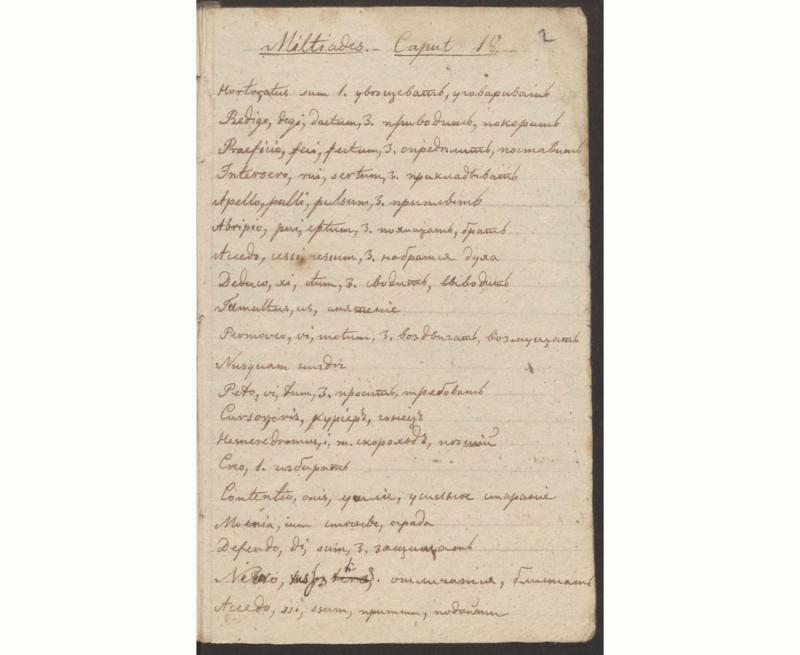 2
Miltiades. Caput 18.
Hortatus sum 1. увѣщевать, уговаривать
Redigo, degi, dactum, 3. приводить, покорить
Praeficio, feci, fectum, 3. опредѣлить, поставить
Intersero, rui, sertum, 3. прикладывать
Apello, pulli, pulsum, 3. приплыть
Abripio, pui, eptum, 3. похищать, брать
Accedo, cessi cessum, 3. набратся духа
Deduco, xi, ctum, 3. сводить, выводить
Tumultus, us, смятеніе
Permoveo, vi, motum, 3. воздвигать, возмущать
Nusquam нигдѣ
Peto, vi, tum, 3. просить, требовать
Cursor, oris, курьеръ, гонецъ
Hemeredromus, i, m. скороходъ, пѣшій
Creo, 1. избирать
Contentio, onis, усиліе, усильное стараніе
Moenia, ium стѣны, ограда
Defendo, di, sum, 3. защищать
отличатся, блистать
Accedo, ssi, ssum, притти, подойти